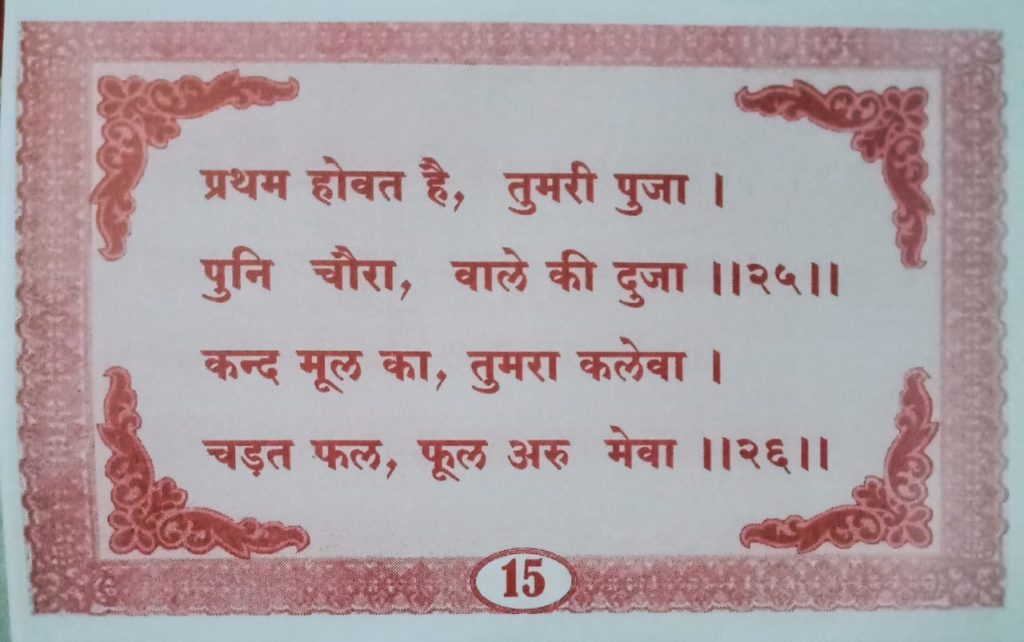 प्रथम होवत है, तुमरी पुजा ।
पुनि चौरा, वाले की दुजा ।।२५।।
कन्द मूल का, तुमरा कलेवा ।
चड़त फल, फूल अरु मेवा ।।२६।।
15